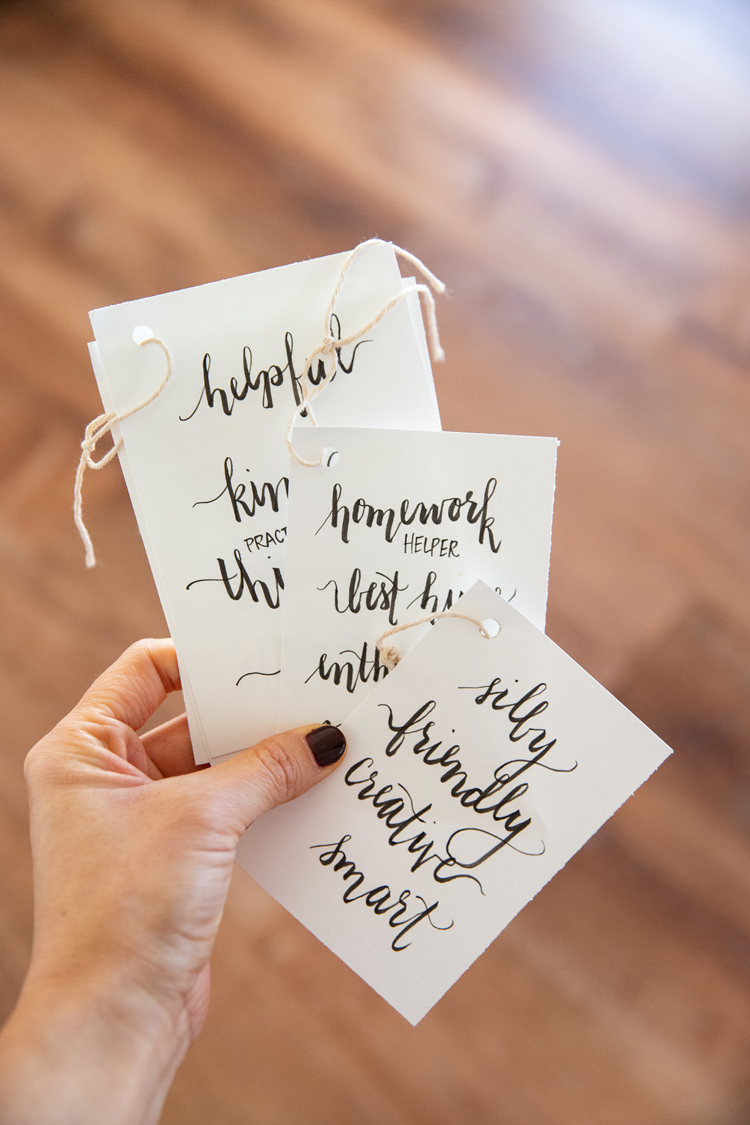 helpful
kin
PRACT
thi
homework
HELPER
best hu
enth
silly
friendly
creative
smart